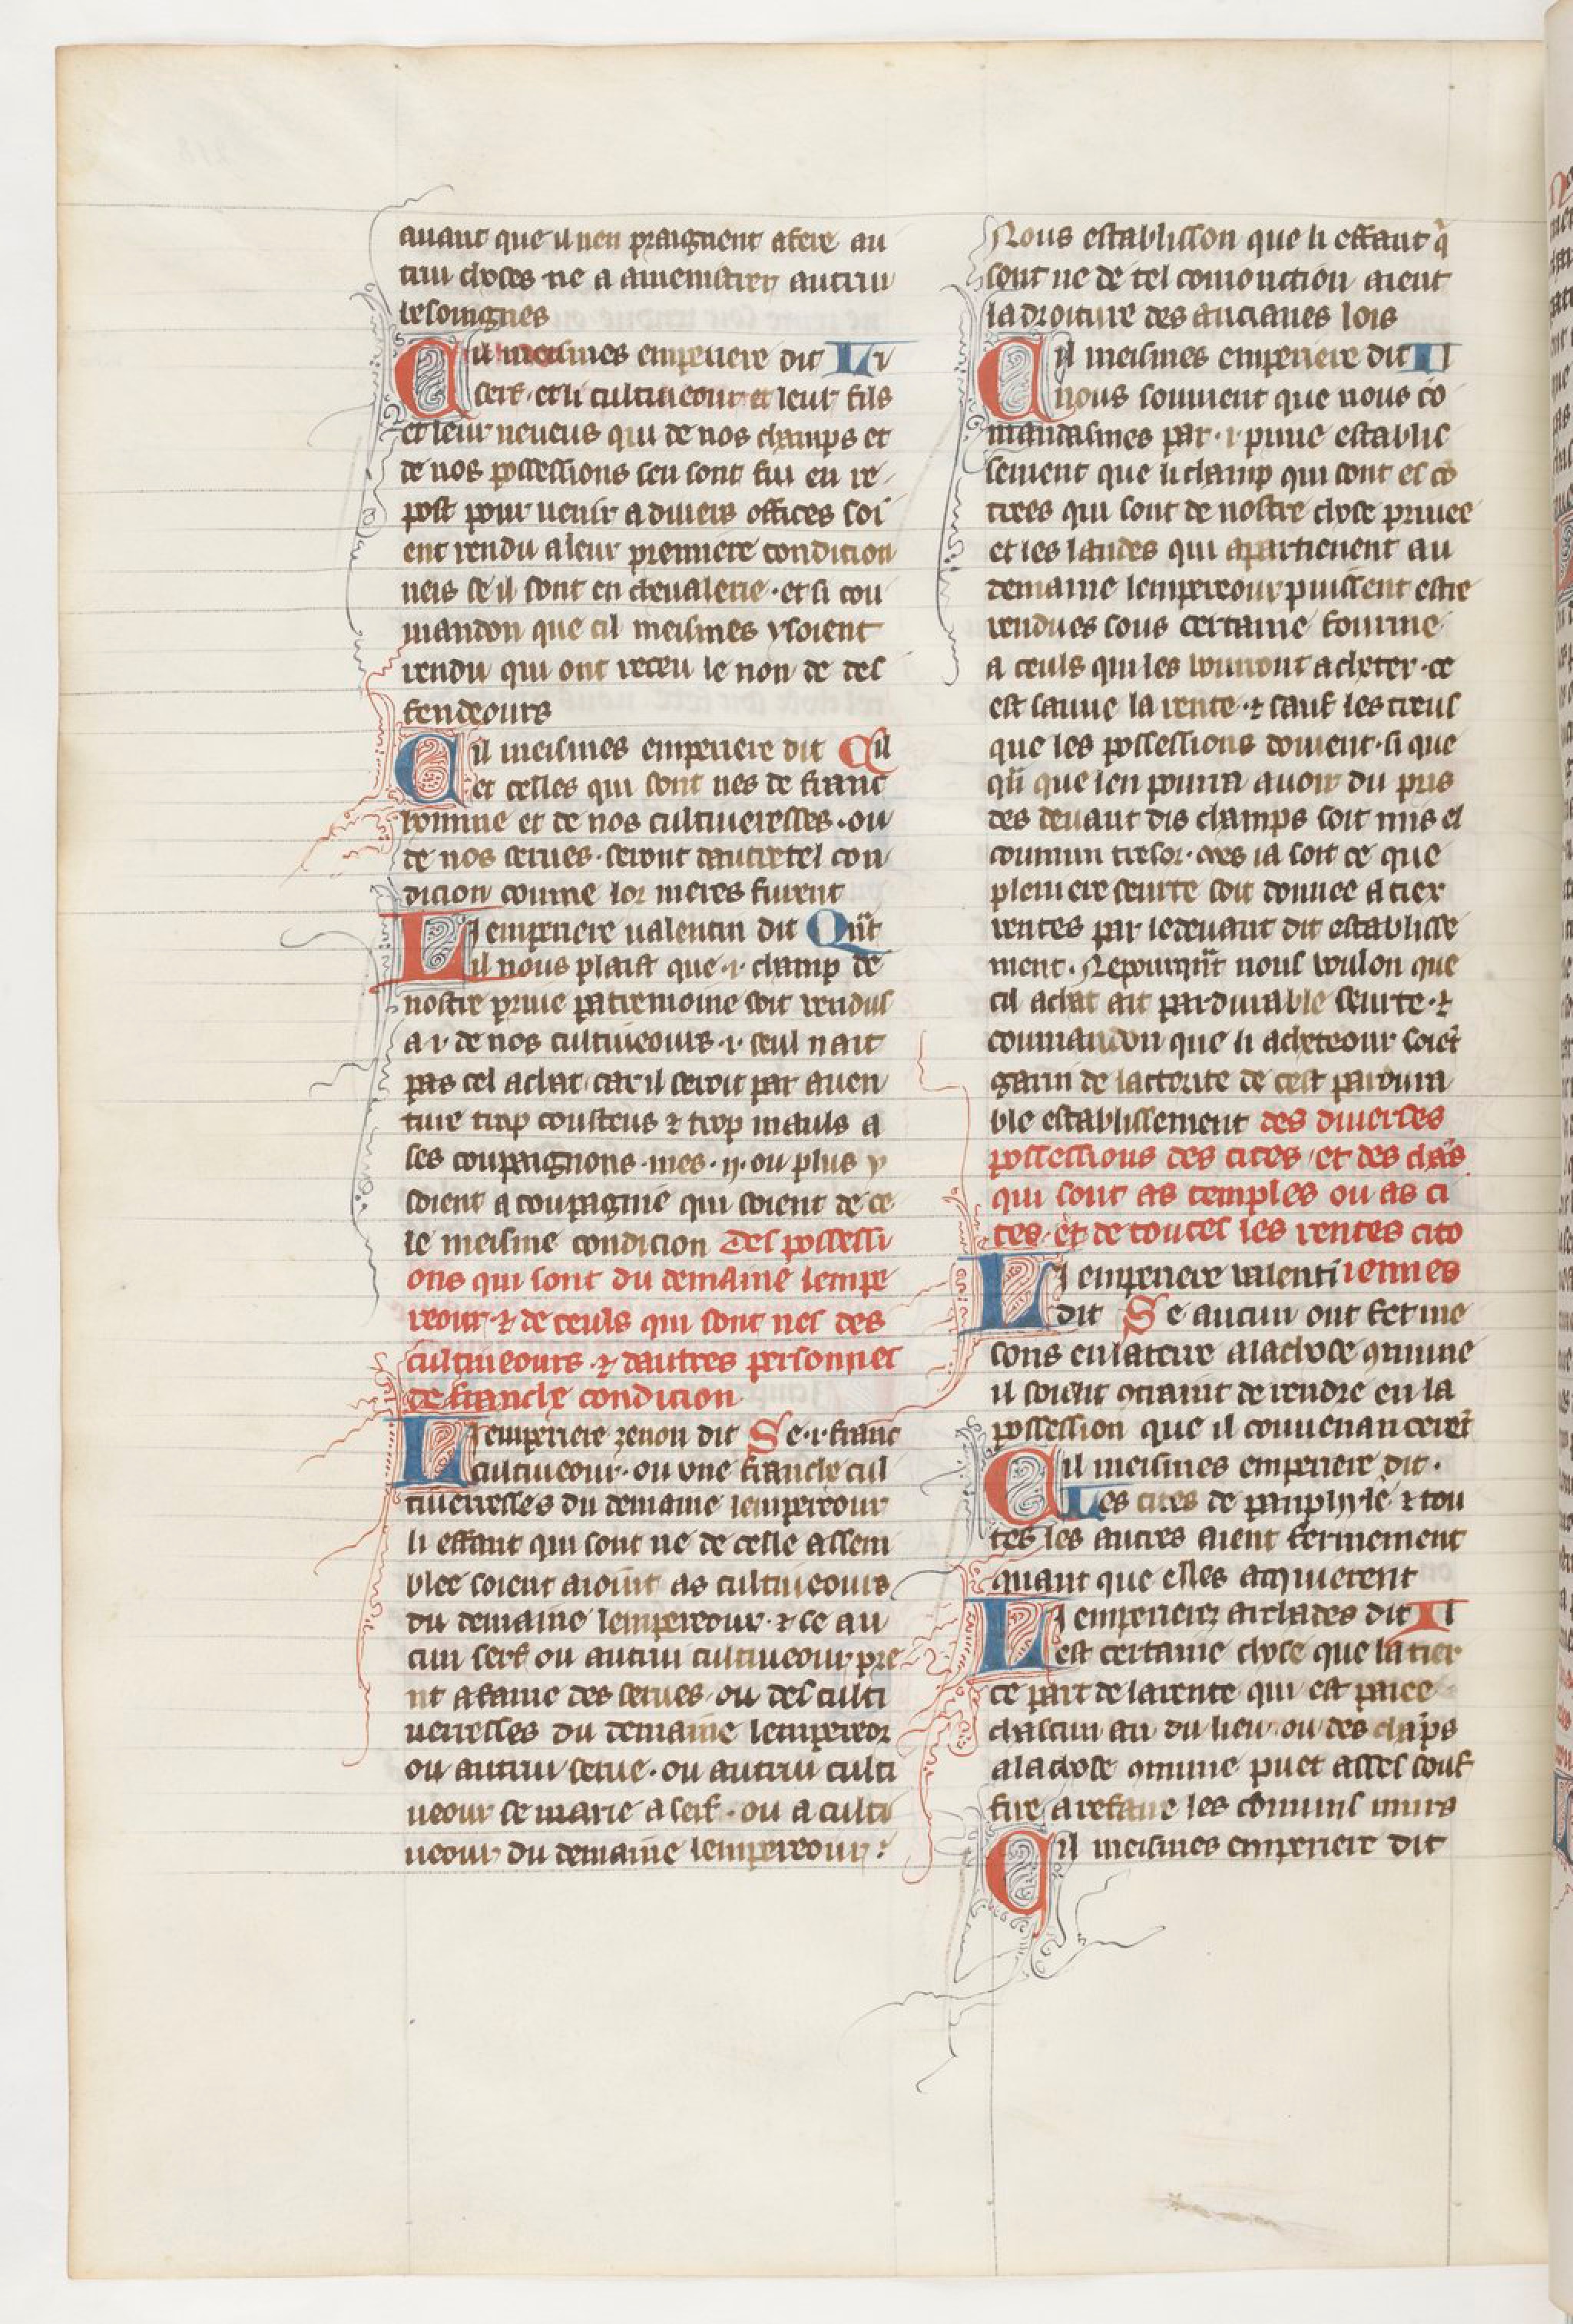 auant que il nen praignent afere au
trui choces ne a amenistrer autrui
besoingnes
Cil meismes emperiere dit Li
serf et li cultiueour et leur fils
et leur neueus qui de nos champs et
de nos possessions seu sont fui en re
post pour uenir a diuers offices soi
ent rendu a leur premiere condicion
neis se il sont en cheualerie · et si cou
mandon que cil meismes y soient
rendu qui ont receu le non de def
fendeours
Cil meismes emperiere dit Cil
et celles qui sont nes de franc
homme et de nos cultiueresses · ou
de nos serues · seront dautretel con
dicion coume lor meres furent
Li emperiere ualentin dit Qnt
il nous plaist que ·i· champ de
nostre priue patremoine soit rendus
a ·i· de nos cultiueours ·i· seul nait
pas cel achat car il seroit par auen
ture trop cousteus ⁊ trop mauls a
ses coupaignons · mes ·ij· ou plus y
soient a coupagnie qui soient de ce
le meisme condicion des possessi
ons qui sont du demaine lempe
reour ⁊ de ceuls qui sont nes des
cultiueours ⁊ dautres personnes
de franche condicion
Li emperiere zenon dit Se ·i· franc
cultiueour · ou vne franche cul
tiuerresses du demaine lempereour
li effant qui sont ne de celle assem
blee soient aioint as cultiueours
du demaine lempereour · ⁊ se au
cun serf ou autrui cultiueour pre
nt a fame des serues · ou des culti
uerresses du demaine lempereor
ou autrui serue · ou autrui culti
ueour se marie a serf · ou a culti
ueour du demaine lempereour :
Nous establisson que li effant q̃
sont ne de tel coniouction aient
la droiture des ancianes lois
Cil meismes emperiere dit Il
nous souuient que nous co
mandasmes par ·i· priue establis
sement que li champ qui sont es co
trees qui sont de nostre chose priuee
et les landes qui apartienent au
demaine lempereour puissent estre
rendues sous certaine fourme
a ceuls qui les vourront acheter · ce
est sauue la rente · ⁊ sauf les treus
que les possessions doiuent · si que
qñ que len pourra auoir du pris
des deuant dis champs soit mis el
coumun tresor · mes ia soit ce que
pleniere seurte soit donnee a tiex
uentes par le deuant dit establisse
ment · Nepourqñt nous voulon que
cil achat ait pardurable seurte · ⁊
coumandon que li acheteour soiẽt
garni de lactorite de cest pardura
ble establissement des diuerses
possessions des cites · et des chãs
qui sont as temples ou as ci
tes · et de toutes les rentes cito
Li emperiere valenti iennes
dit Se aucun ont fet me
sons en la terre a la chose ꝯmune
il soient ꝯtraint de rendre en la
possession que il conuenanceret
Cil meismes emperiere dit ·
Les cites de panphyle ⁊ tou
tes les autres aient fermement
quant que elles acquierent
Li emperierez archades dit Il
est certaine chose que la tier
ce part de la rente qui est paiee
chascun an du lieu · ou des chãps
a la chose ꝯmune puet asses souf
fire a refaire les cõmuns murs
Cil meismes emperiere dit